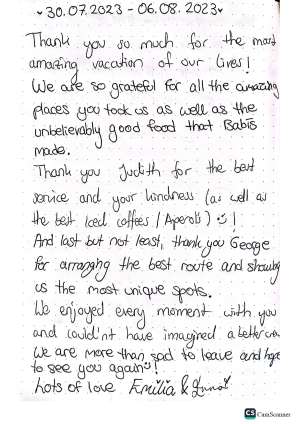 30.07.2023 - 06.08.2023
Thank you so much for the most
amazing vacation of our lives!
We are so grateful for all the amazing
places you took us as well as the
unbelievably good food that Babis
made.
Thank you Judith for the best
service and your kindness (as well as
the best Iced coffees / Aperols) !
And last but not least, thank you George
for arranging the best route and showing
us the most unique spots.
We enjoyed every moment with you
and couldn't have imagined a better
We are more than sad to leave and hope
to see you again !
Lots of love Emilia &
CS CamScanner